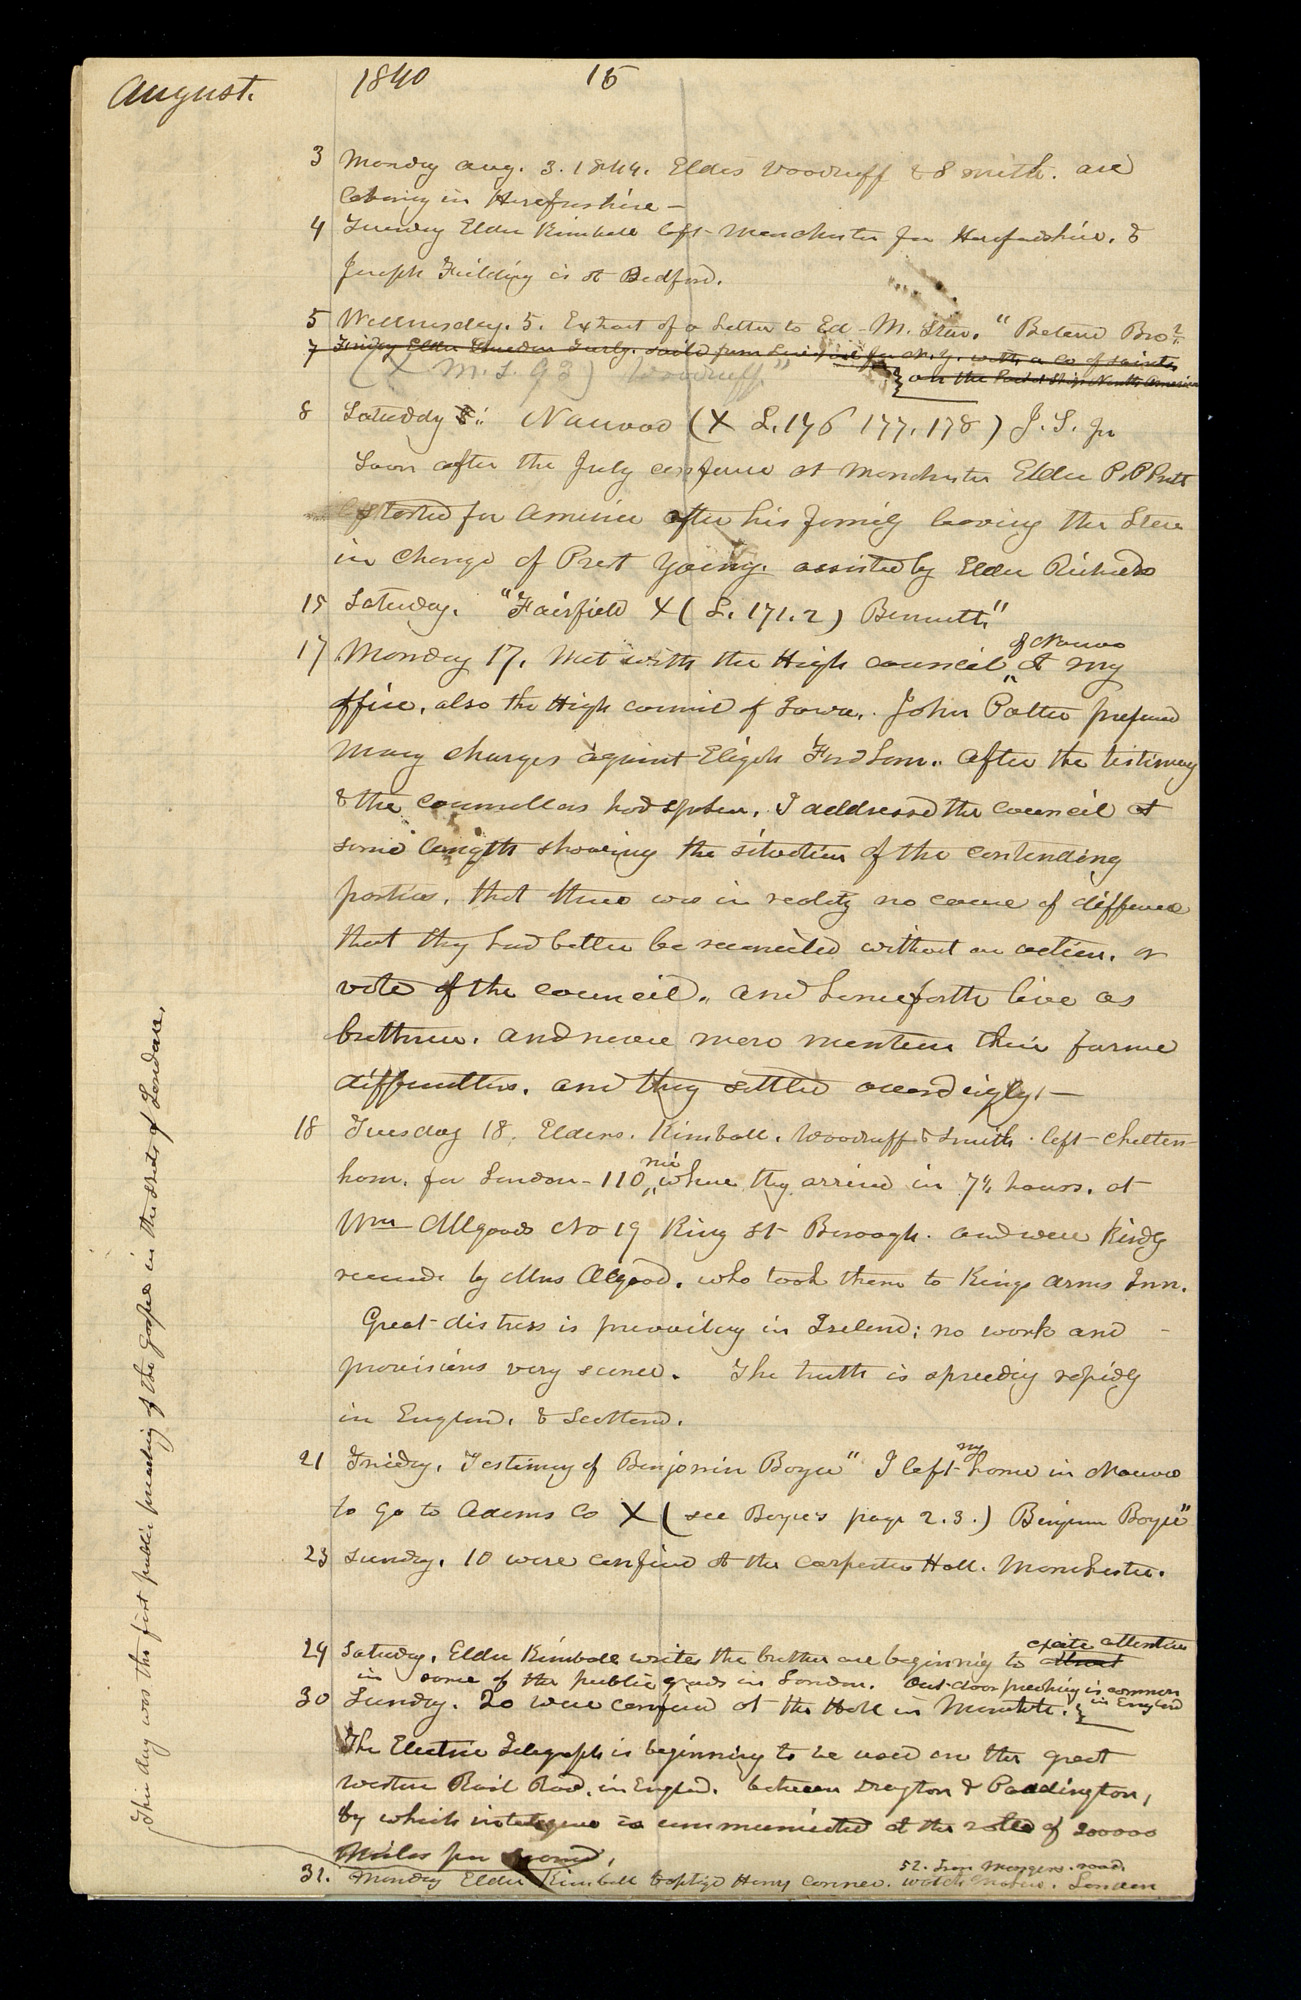 August. 1840 15
3 Monday Aug. 3. 1844. Elders Woodruff & Smith. are
laboring in Herefordshire —
4 Tuesday Elder Kimball left Manchester for Herefordshire. &
Joseph Fielding is at Bedford.
5 Wednesday. 5. Extract of a Letter to Ed. M. Star. "Beloved Bro.
7 Friday Elder Theodore Turley. sailed from Liverpool for N.Y. with a co of saints
on the Packet Ship North America
(X M.S. 93) Woodruff"
8 Saturday 8: Nauvoo (X L. 176 177. 178) J. S. Jr
Soon after the July conference at Manchester Elder P. P Pratt
started for America after his family leaving the Star
in charge of Prest Young. assisted by Elder Richards
15 Saturday. "Fairfield X (L. 171. 2) Bennett."
of Nauvoo
17 Monday 17. Met with the High council at my
office. also the High council of Iowa. John Patten prefered
many charges against Elijah Fordham. after the testimony
& the councellors had spoken. I addressed the council at
some length showing the situation of the contending
parties. that there was in reality no cause of difference
that they had better be reconciled without an action. or
vote of the council. and henceforth live as
brethren. and never more mention their former
difficulties. and they settled accordingly. —
18 Tuesday 18. Elders. Kimball. Woodruff & Smith. left Chelten-
mi
ham. for London — 110 where they arrived in 7½ hours. at
Wm Allgoods No 19 King St Borough. and were kindly
received by Mrs Algood. who took them to Kings Arms Inn.
Great distress is prevailing in Ireland; no work and —
provisions very scarce. The truth is spreading rapidly
in England. & Scotland.
my
21 Friday. Testimony of Benjamin Boyce "I left home in Nauvoo
to go to Adams Co X (see Boyce's page 2. 3.) Benjamin Boyce"
23 Sunday. 10 were confirmed at the Carpenters Hall. Manchester.
excite attention
29 Saturday. Elder Kimball writes the brethren are beginning to attract
in some of the public grounds in London. Out door preaching is common
in England
30 Sunday. 20 were confirmed at the Hall in Manchester.
The Electric Telegraph is beginning to be used on the great
Western Rail Road. in England. between Drayton & Paddington,
by which inteligence is communicated at the rate of 200000
Miles per second,
52. Iron Mongers. road
31. Monday Elder Kimball baptized Henry Conner. watch maker. London
This day was the first public preaching of the gospel in the streets of London.